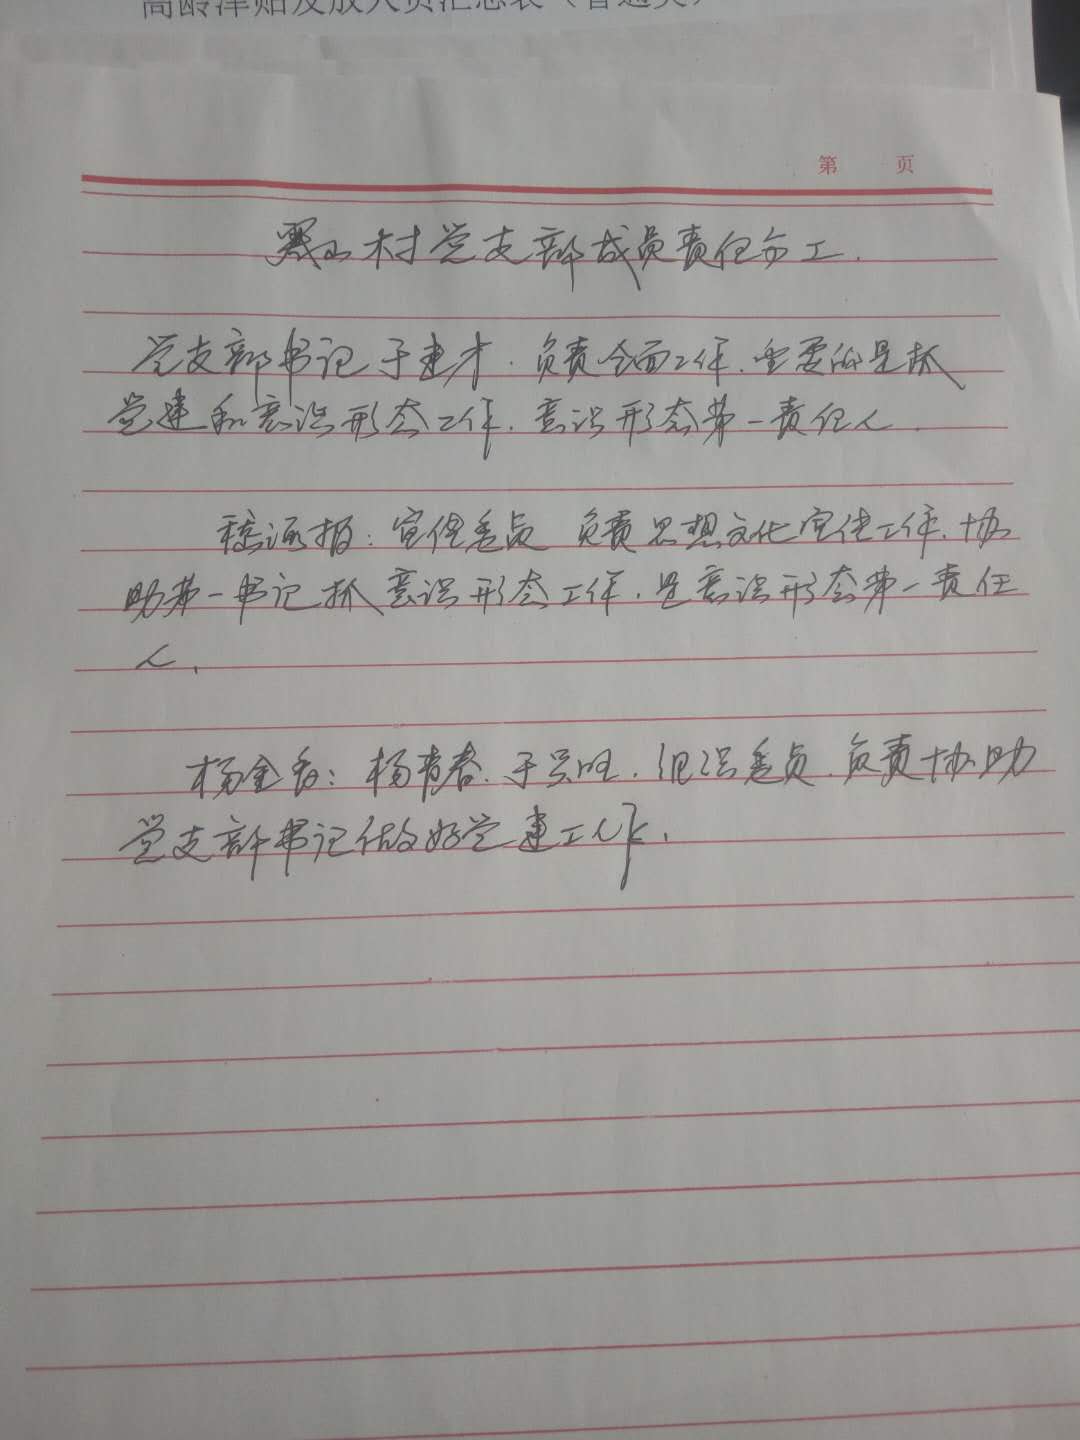 高龄津贴发放人员汇总表（普通类）
第 页
村党支部成员责任分工.
党支部书记于建才.负责全面工作.重要的是抓
党建和意识形态工作.意识形态第一责任人.
宣传委员 负责思想文化宣传工作.协
助第一书记抓意识形态工作.是意识形态第一责任
人.
杨金香:杨青春.于兴旺.组织委员.负责协助
党支部书记做好党建工作.